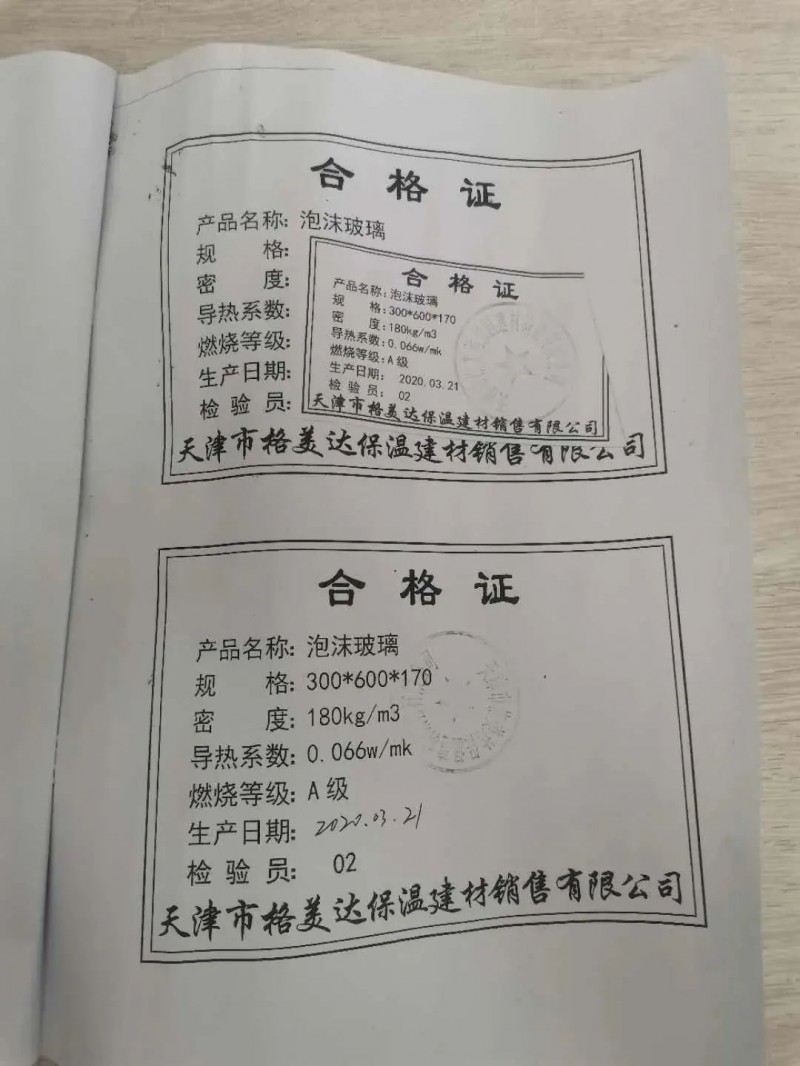 合格证
产品名称: 泡沫玻璃
规 格:
密 度:
导热系数:
燃烧等级:
生产日期:
检 验 员:
合格证
产品名称: 泡沫玻璃
规 格: 300*600*170
密 度: 180kg/m3
导热系数: 0.066w/mk
燃烧等级: A 级
生产日期: 2020.03.21
检 验 员: 02
天津市格美达保温建材销售有限公司
天津市格美达保温建材销售有限公司
合格证
产品名称: 泡沫玻璃
规 格: 300*600*170
密 度: 180kg/m3
导热系数: 0.066w/mk
燃烧等级: A 级
生产日期: 2020.03.21
检 验 员: 02
天津市格美达保温建材销售有限公司